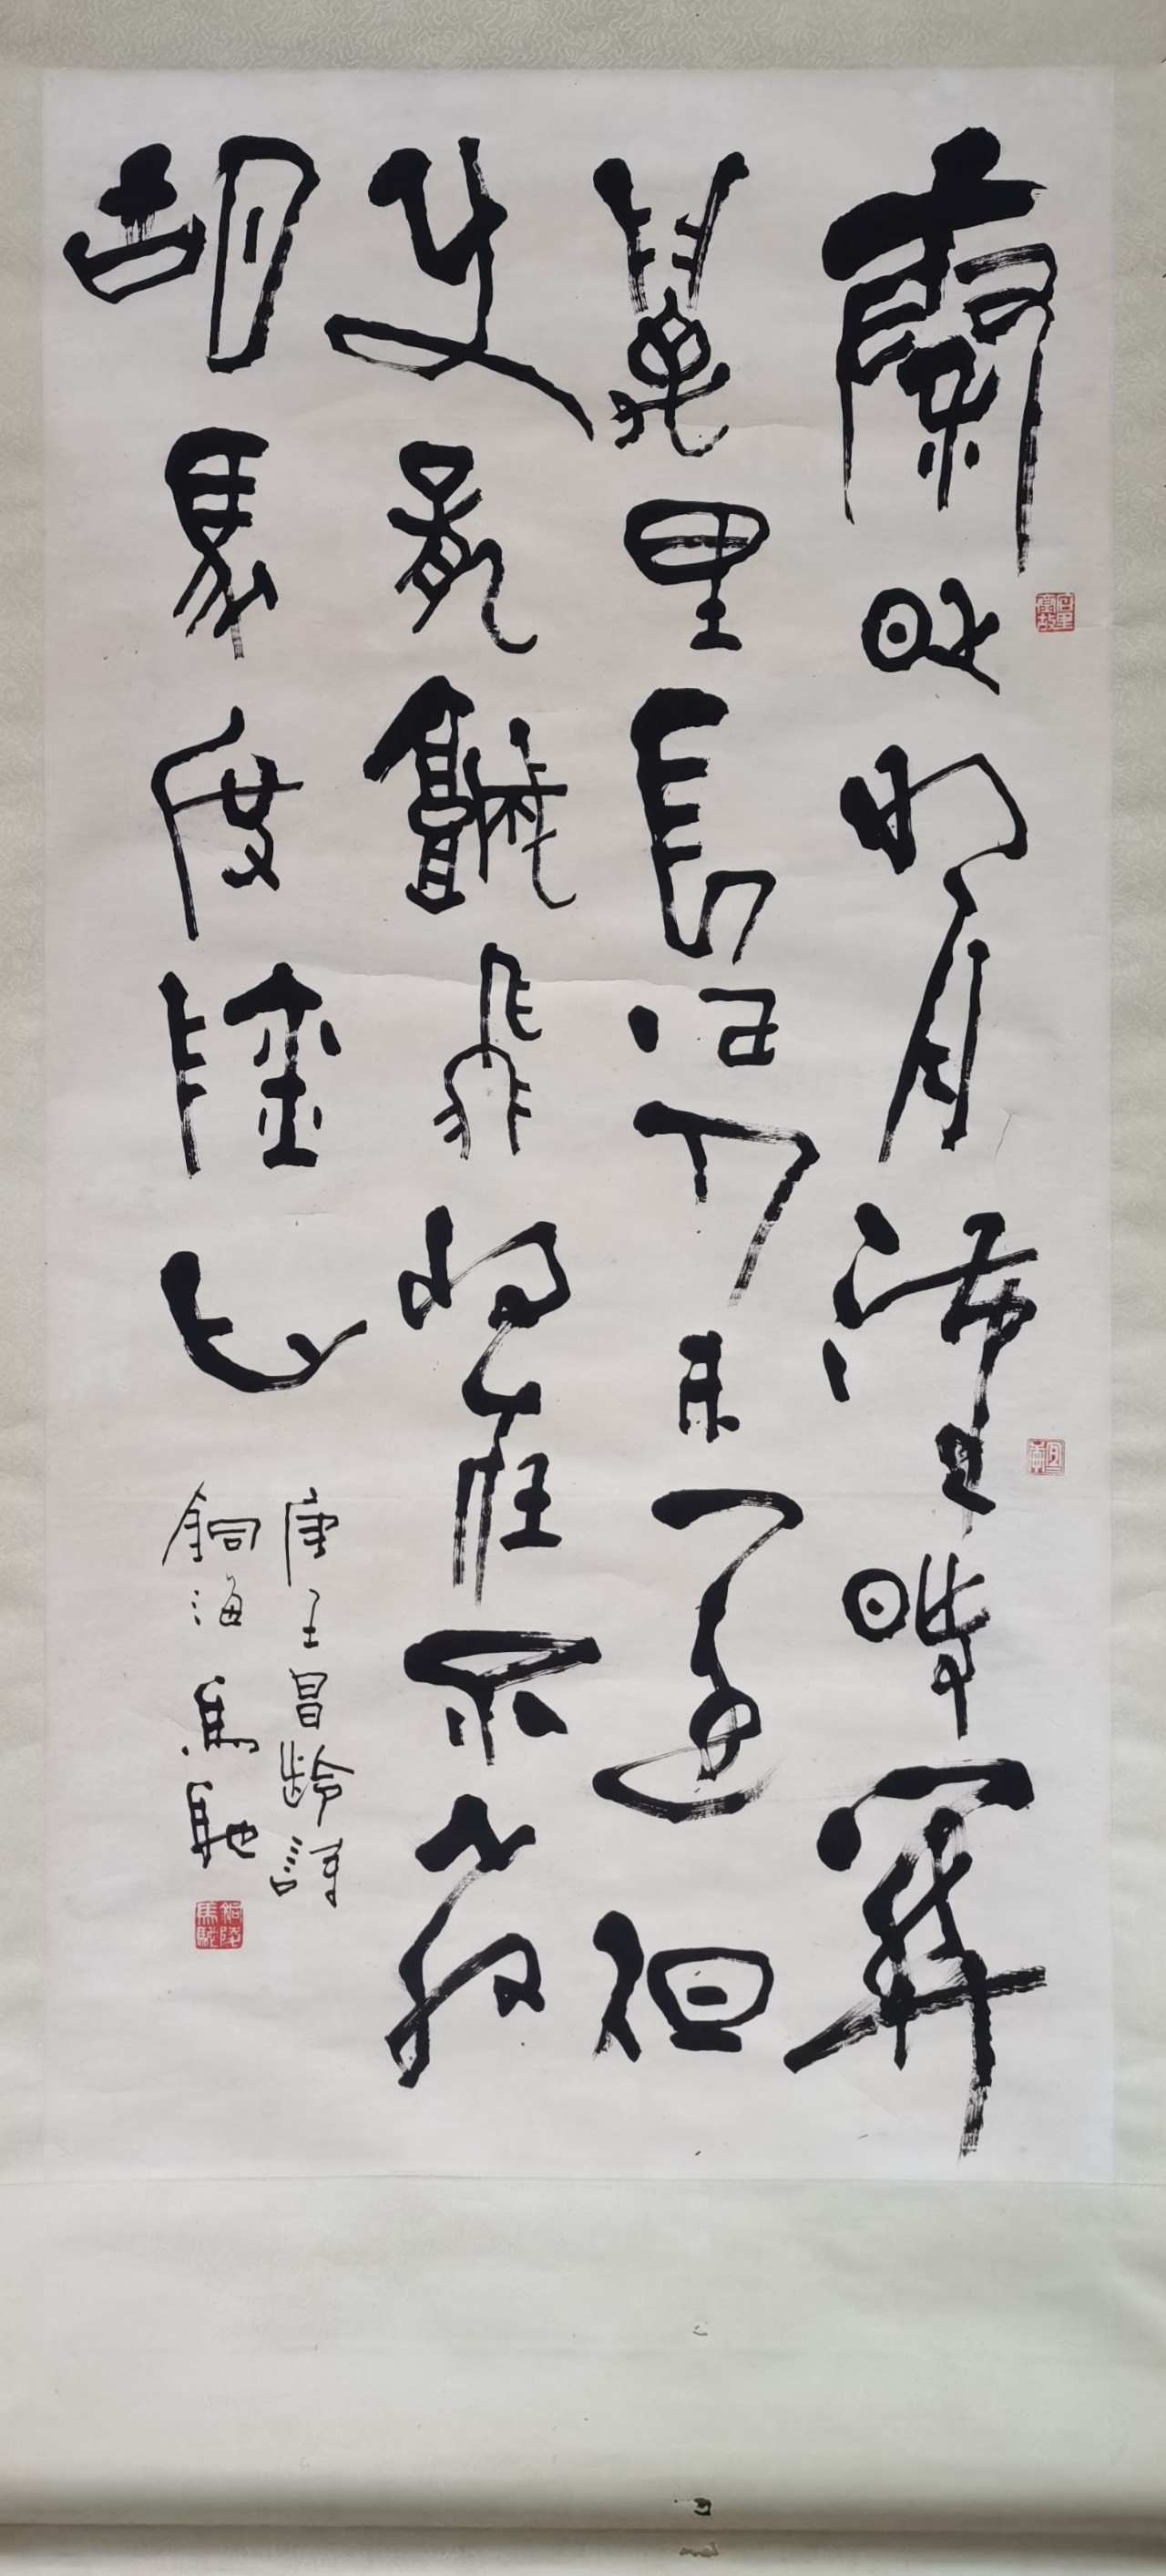 秦時明月漢時關
萬里長征人未還但
使龍城飛將在不教
胡馬度陰山
唐王昌齡詩
銅海馬馳
銅陵馬馳